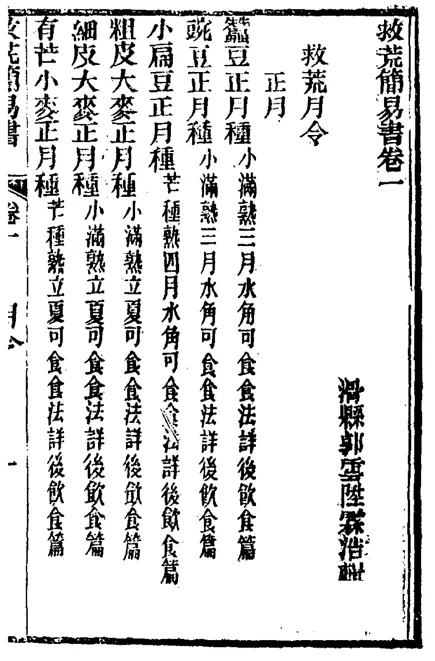 救荒簡易書卷一
滑縣郭雲陞霖浩輯
救荒月令
正月
蠶豆正月種小滿熟三月水角可食食法詳後飲食篇
豌豆正月種小滿熟三月水角可食食法詳後飲食篇
小扁豆正月種芒種熟四月水角可食食法詳後飲食篇
粗皮大麥正月種小滿熟立夏可食食法詳後飲食篇
細皮大麥正月種小滿熟立夏可食食法詳後飲食篇
有芒小麥正月種芒種熟立夏可食食法詳後飲食篇
救荒簡易書 卷一 月令 一